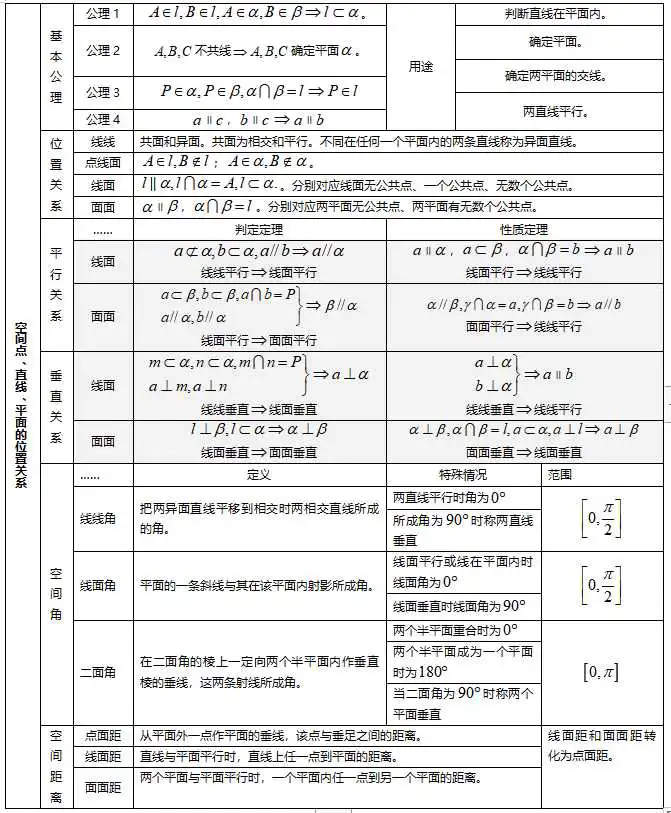 空间点、直线、平面的位置关系
基本公理
公理1
A∈l,B∈l,A∈α,B∈β⇒l⊂α。
用途
判断直线在平面内。
公理2
A,B,C 不共线⇒A,B,C 确定平面α。
确定平面。
公理3
P∈α,P∈β,α⋂β=l⇒P∈l
确定两平面的交线。
公理4
a∥c，b∥c⇒a∥b
两直线平行。
位置关系
线线
共面和异面。共面为相交和平行。不同在任何一个平面内的两条直线称为异面直线。
点线面
A∈l,B∉l；A∈α,B∉α。
线面
l∥α,l⋂α=A,l⊂α.。分别对应线面无公共点、一个公共点、无数个公共点。
面面
α∥β，α⋂β=l。分别对应两平面无公共点、两平面有无数个公共点。
平行关系
......
判定定理
性质定理
线面
a⊄α,b⊂α,a//b⇒a//α
线线平行⇒线面平行
a∥α，a⊂β，α⋂β=b⇒a∥b
线面平行⇒线线平行
面面
a⊂β,b⊂β,a⋂b=P
a//α,b//α
}⇒β//α
线面平行⇒面面平行
α//β,γ⋂α=a,γ⋂β=b⇒a//b
面面平行⇒线线平行
垂直关系
线面
m⊂α,n⊂α,m⋂n=P
a⊥m,a⊥n
}⇒a⊥α
线线垂直⇒线面垂直
a⊥α
b⊥α
}⇒a∥b
线线垂直⇒线线平行
面面
l⊥β,l⊂α⇒α⊥β
线面垂直⇒面面垂直
α⊥β,α⋂β=l,a⊂α,a⊥l⇒a⊥β
面面垂直⇒线面垂直
空间角
......
定义
特殊情况
范围
线线角
把两异面直线平移到相交时两相交直线所成
的角。
两直线平行时角为0°
所成角为90°时称两直线
垂直
[0,π/2]
线面角
平面的一条斜线与其在该平面内射影所成角。
线面平行或线在平面内时
线面角为0°
线面垂直时线面角为90°
[0,π/2]
二面角
在二面角的棱上一定向两个半平面内作垂直
棱的垂线，这两条射线所成角。
两个半平面重合时为0°
两个半平面成为一个平面
时为180°
当二面角为90°时称两个
平面垂直
[0,π]
空间距离
点面距
从平面外一点作平面的垂线，该点与垂足之间的距离。
线面距和面面距转
化为点面距。
线面距
直线与平面平行时，直线上任一点到平面的距离。
面面距
两个平面与平面平行时，一个平面内任一点到另一个平面的距离。